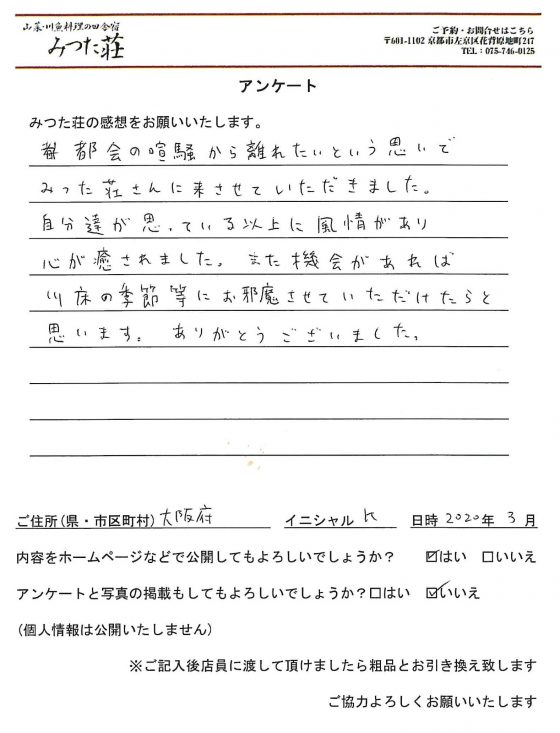 山菜・川魚料理の田舎宿
みつた荘
ご予約・お問合せはこちら
〒601-1102 京都市左京区花背原地町247
TEL：075-746-0125
アンケート
みつた荘の感想をお願いいたします。
都会の喧騒から離れたいという思いで
みつた荘さんに来させていただきました。
自分達が思っている以上に風情があり
心が癒されました。また機会があれば
川床の季節等にお邪魔させていただけたらと
思います。ありがとうございました。
ご住所(県・市区町村) 大阪府 イニシャル K 日時 2020年 3月
内容をホームページなどで公開してもよろしいでしょうか？ ☑はい □いいえ
アンケートと写真の掲載もしてもよろしいでしょうか？□はい ☑いいえ
(個人情報は公開いたしません)
※ご記入後店員に渡して頂けましたら粗品とお引き換え致します
ご協力よろしくお願いいたします